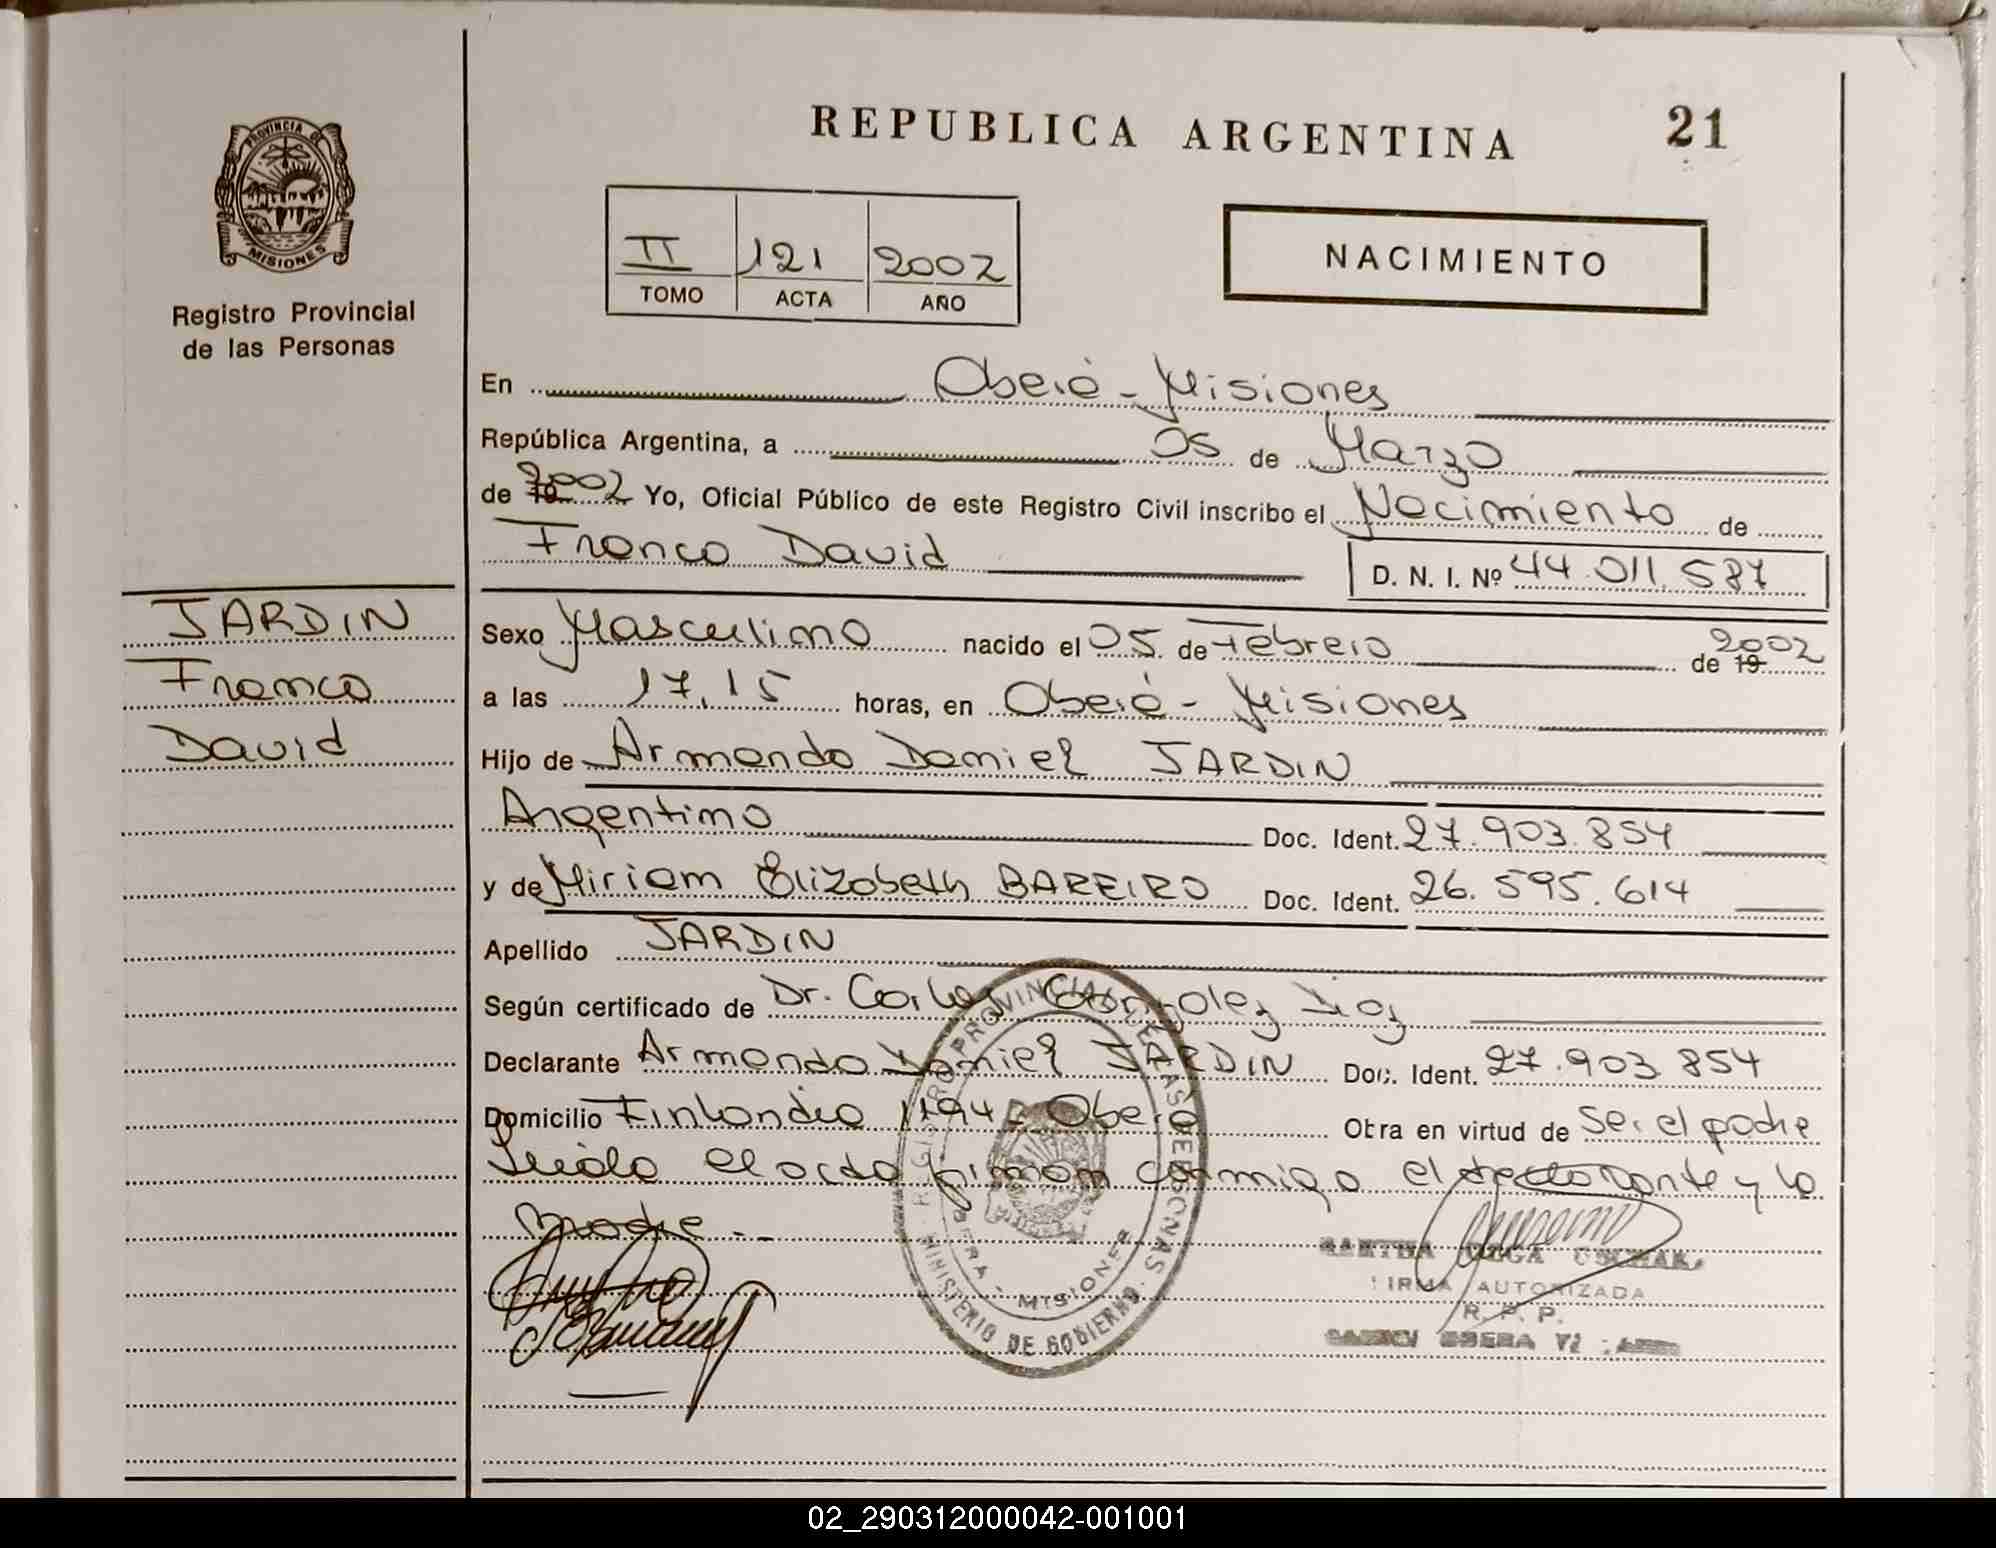 REPUBLICA ARGENTINA
21
PROVINCIA DE
MISIONES
Registro Provincial
de las Personas
II 121 2002
TOMO ACTA AÑO
NACIMIENTO
En Oberá - Misiones
República Argentina, a 05 de Marzo
de 19 2002 Yo, Oficial Público de este Registro Civil inscribo el Nacimiento de
Franco David D. N. I. Nº 44.011.587
JARDIN
Franco
David
Sexo Masculino nacido el 05 de Febrero de 19 2002
a las 17,15 horas, en Oberá - Misiones
Hijo de Armando Daniel JARDIN
Argentino Doc. Ident. 27.903.854
y de Miriam Elizabeth BAREIRO Doc. Ident. 26.595.614
Apellido JARDIN
Según certificado de Dr. Carlos Gonzalez Diaz
Declarante Armando Daniel JARDIN Doc. Ident. 27.903.854
Domicilio Finlandia 1194 - Oberá Obra en virtud de Ser el padre
Leída el acta firman conmigo el declarante y la
madre --
REGISTRO PROVINCIAL DE LAS PERSONAS
MINISTERIO DE GOBIERNO
OBERA - MISIONES
FIRMA AUTORIZADA
R. P. P.
02_290312000042-001001